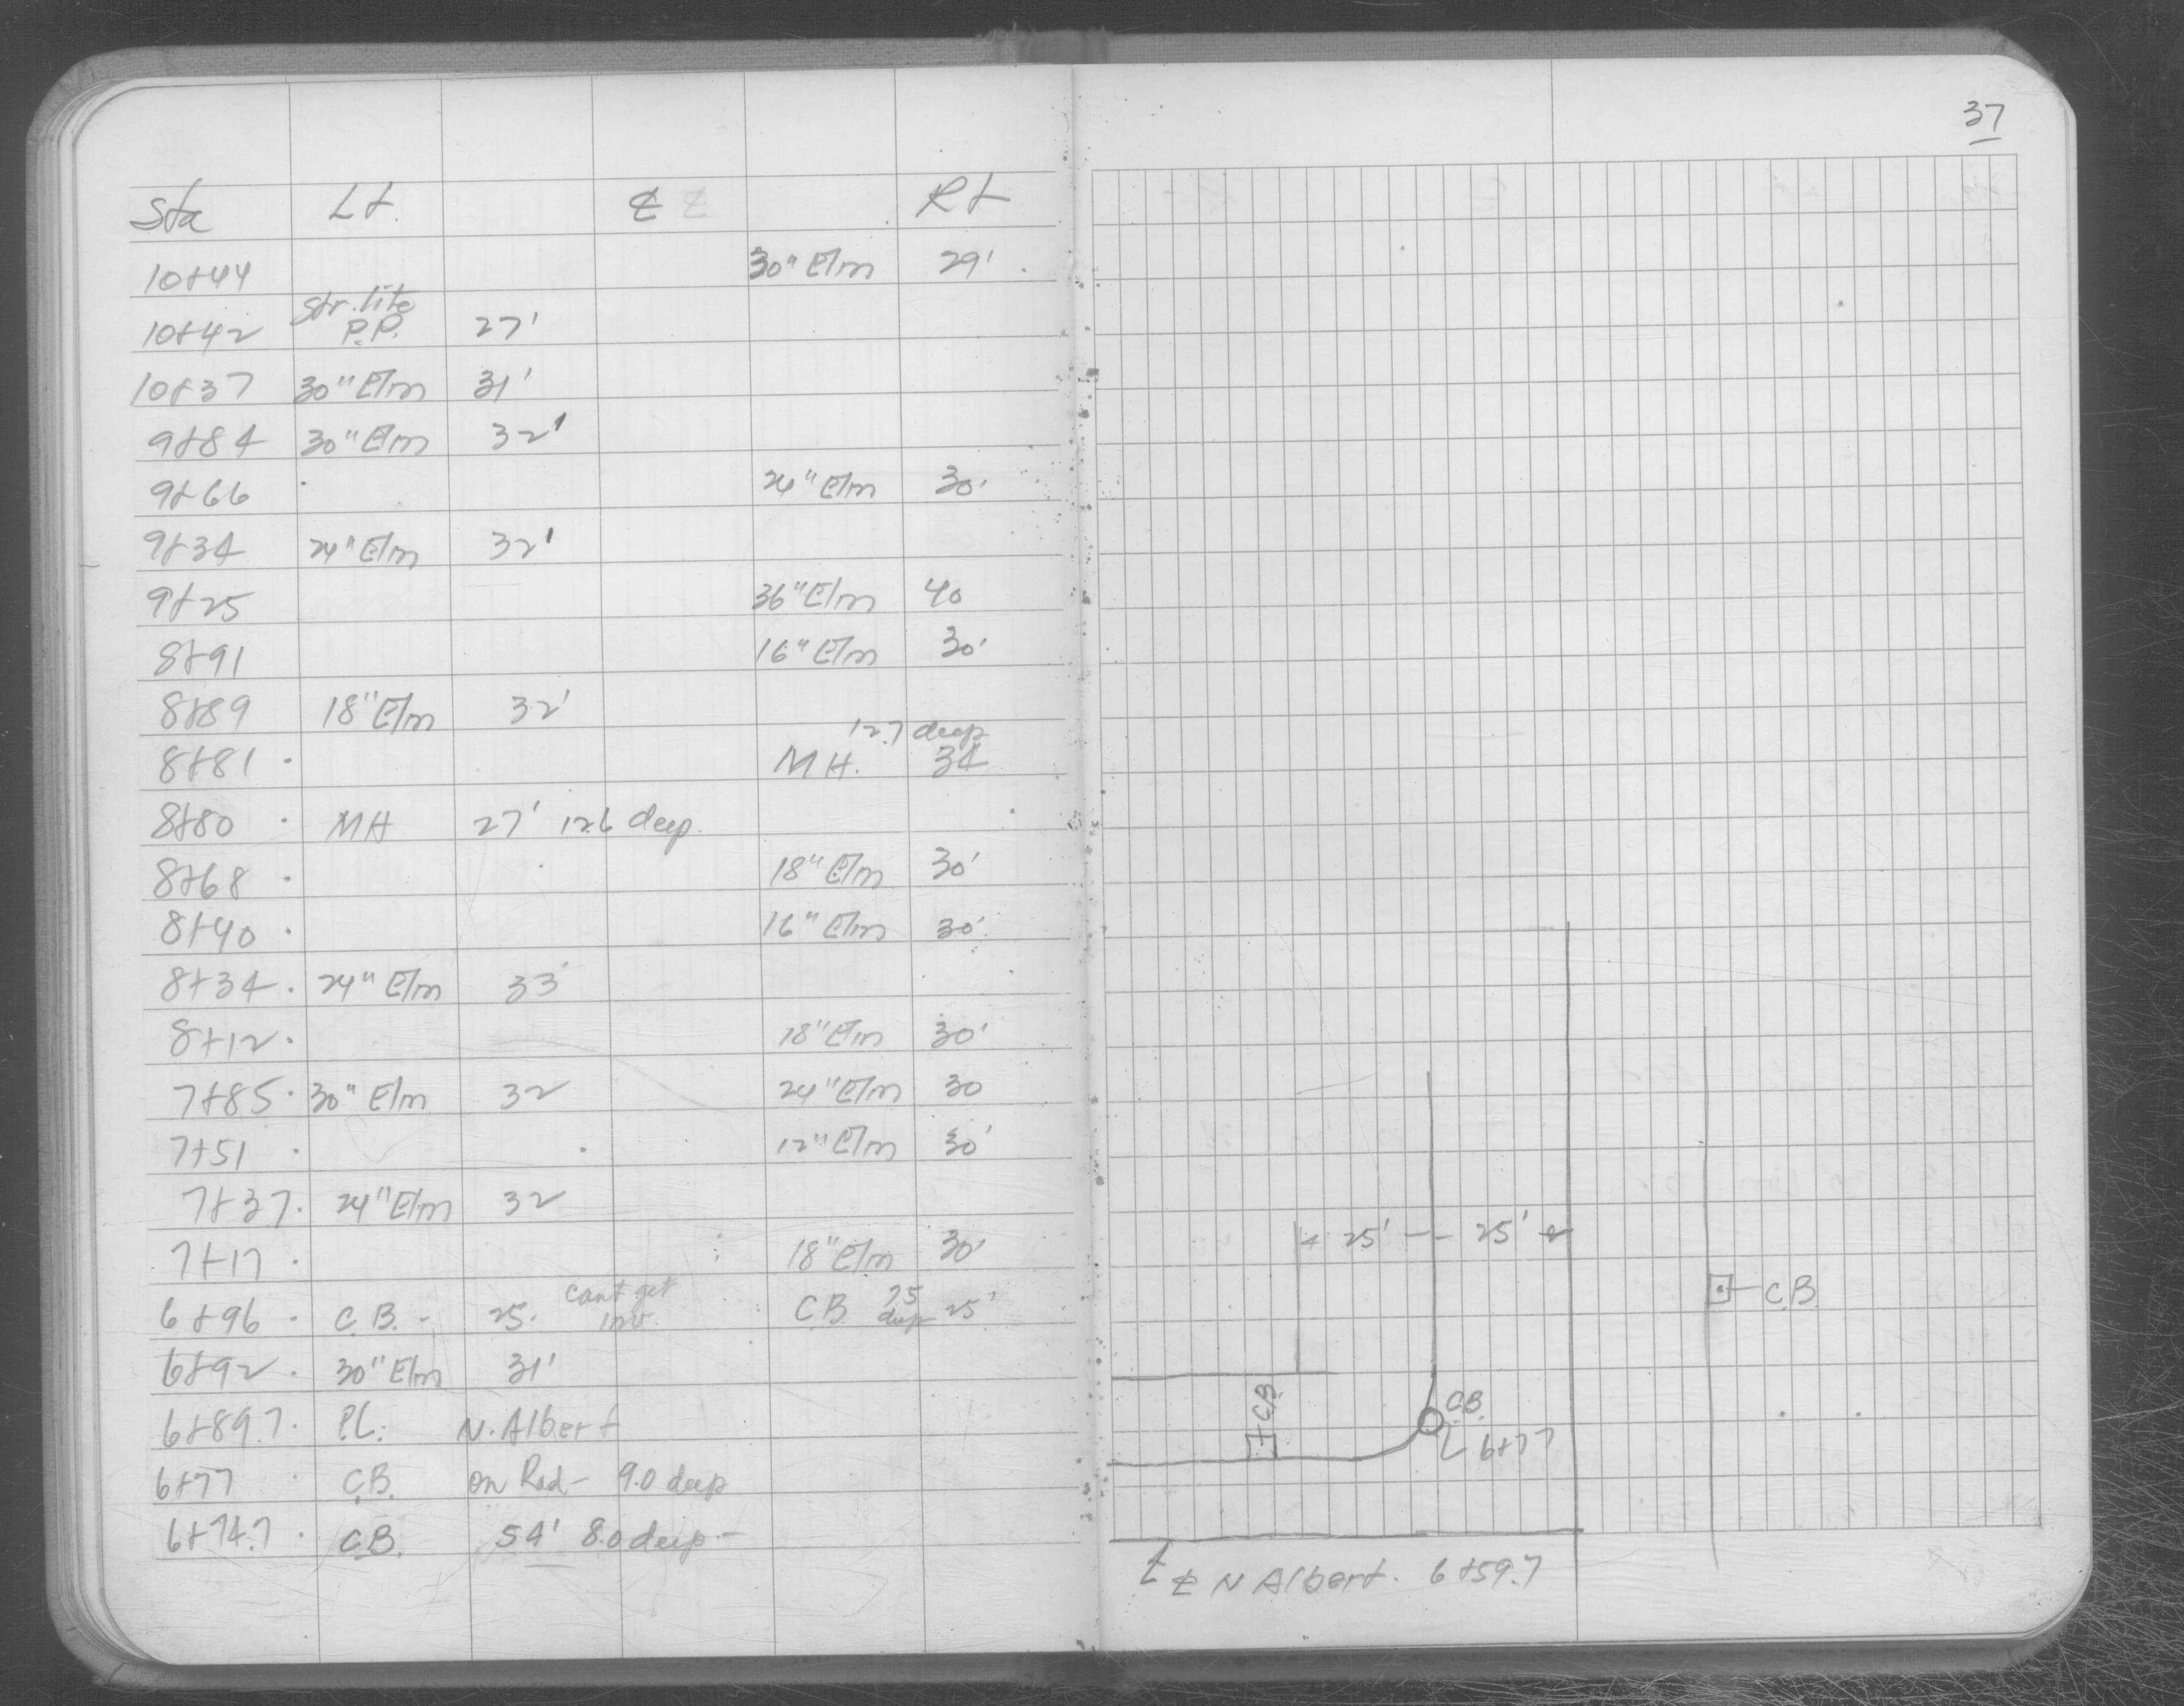 Sta Lt. ℄ Rt
10+44 30" Elm 29'
Str. lite
10+42 P.P. 27'
10+37 30" Elm 31'
9+84 30" Elm 32'
9+66 24" Elm 30'
9+34 24" Elm 32'
9+25 36" Elm 40
8+91 16" Elm 30'
8+89 18" Elm 32'
12.7 deep
8+81 MH. 34
8+80 MH 27' 12.6 deep.
8+68 18" Elm 30'
8+40 16" Elm 30'
8+34 24" Elm 33'
8+12 18" Elm 30'
7+85 30" Elm 32 24" Elm 30
7+51 12" Elm 30'
7+37 24" Elm 32
7+17 18" Elm 30'
6+96 C.B. - 25. Cant get inv. C.B. deep 25'
6+92 30" Elm 31'
6+89.7 P.L. N. Albert
6+77 C.B. on Rad - 9.0 deep
6+74.7 C.B. 54' 8.0 deep -
37
25' - 25'
C.B.
C.B.
C.B.
6+77
℄ N Albert. 6+59.7